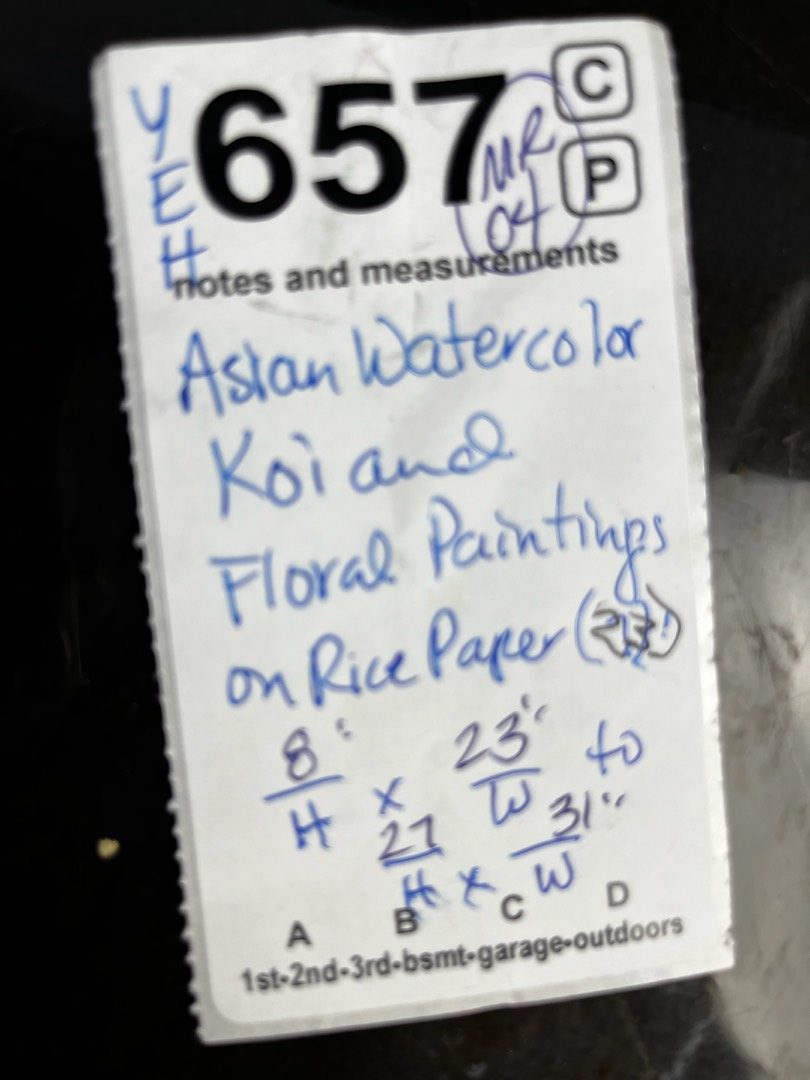 YEH
657
C
P
MR
04
notes and measurements
Asian Watercolor
Koi and
Floral Paintings
on Rice Paper
8" x 23" to
H W
27 x 31"
H W
A B C D
1st-2nd-3rd-bsmt-garage-outdoors